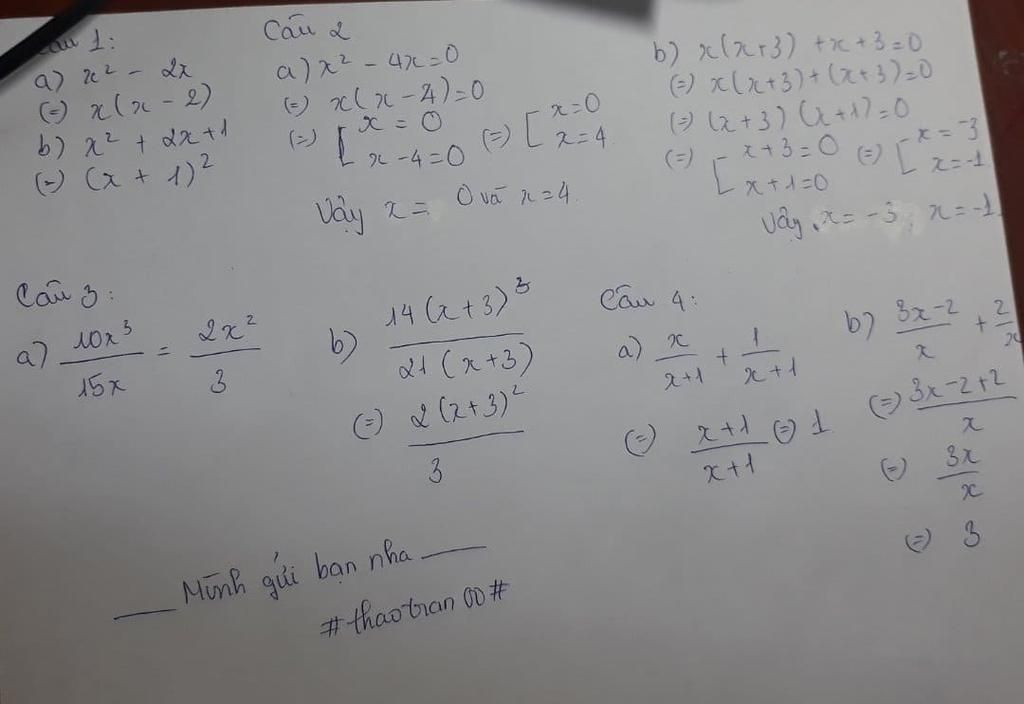 Câu 1:
a) x² - 2x
(=) x(x - 2)
b) x² + 2x+1
(=) (x + 1)²
Câu 2
a) x² - 4x=0
(=) x(x-4)=0
(=) [ x = 0
x-4=0 (=) [ x=0
x=4
Vậy x = 0 và x=4.
b) x(x+3) +x+3=0
(=) x(x+3)+(x+3)=0
(=) (x+3) (x+1)=0
(=) [ x+3=0
x+1=0 (=) [ x=-3
x=-1
Vậy x= -3; x=-1
Câu 3:
a) 10x³/15x = 2x²/3
b) 14(x+3)³/21(x+3)
(=) 2(x+3)²/3
Câu 4:
a) x/x+1 + 1/x+1
(=) x+1/x+1 (=) 1
b) 3x-2/x + 2/x
(=) 3x-2+2/x
(=) 3x/x
(=) 3
Mình gửi bạn nha
#thaotran00#